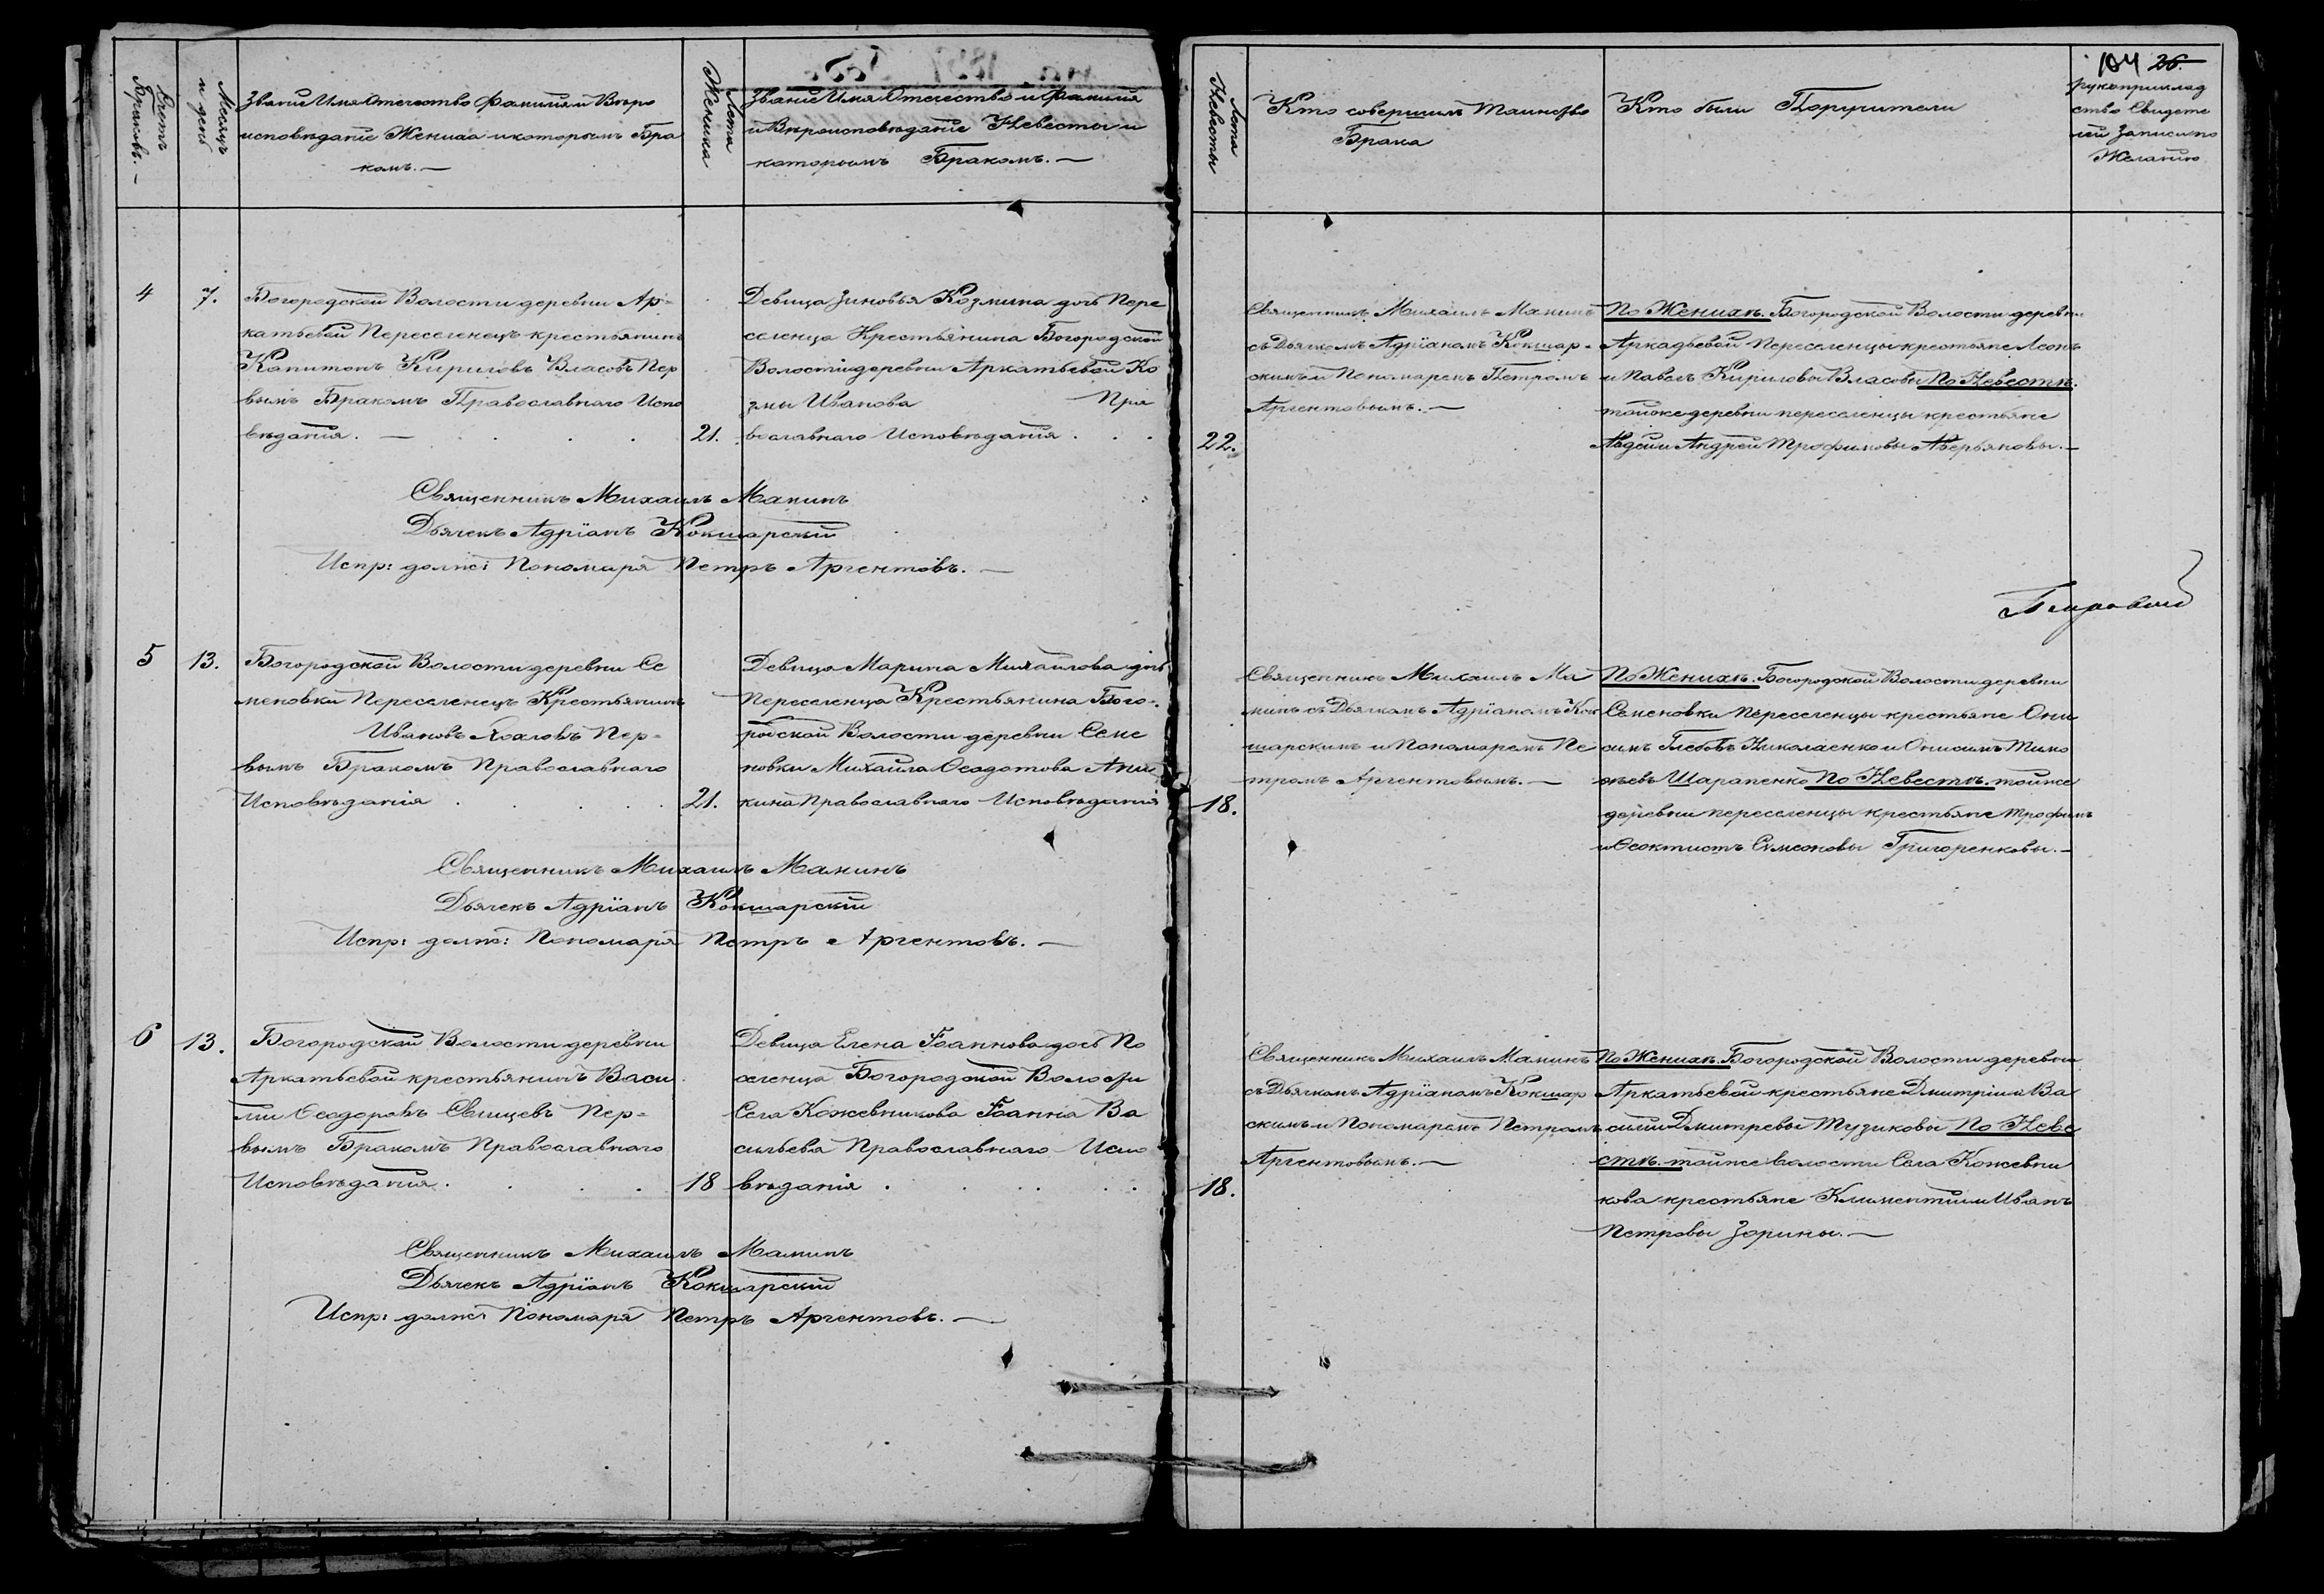 104 26.
Счетъ Браковъ. —
Месяцъ и день
Званіе Имя Отечество Фамилія и Вѣро
исповѣданіе Жениха и которымъ Бра
комъ. —
Лета Жениха
Званіе Имя Отечество и Фамилія
и Вѣроисповѣданіе Невесты и
которымъ Бракомъ. —
Лета Невесты
Кто совершилъ Таинство
Брака
Кто были Поручители
Рукоприклад
ство Свидете
лей Записи по
Желанію
4
7.
Богородской Волости деревни Ар-
катьевой Переселенецъ крестьянинъ
Капитонъ Кириловъ Власовъ Пер
вымъ Бракомъ Православнаго Испо
вѣданія. —
21.
Девица Зиновья Козмина дочь Пере
селенца Крестьянина Богородской
Волости деревни Аркатьевой Ко
змы Иванова Пра
вославнаго Исповѣданія
22.
Священникъ Михаилъ Манинъ
съ Дьячкомъ Адріаномъ Кокшар-
скимъ и Пономаремъ Петромъ
Аргентовымъ. —
По Женихѣ. Богородской Волости деревни
Аркадьевой Переселенцы крестьяне Леонъ
и Павелъ Кириловы Власовы По Невестѣ.
тойже деревни переселенцы крестьяне
Авдей и Андрей Трофимовы Аверьяновы. —
Священникъ Михаилъ Манинъ
Дьячекъ Адріанъ Кокшарскій
Испр: долнс: Пономаря Петръ Аргентовъ. —
5
13.
Богородской Волости деревни Се
меновки Переселенецъ Крестьянинъ
Ивановъ Хохловъ Пер-
вымъ Бракомъ Православнаго
Исповѣданія
21.
Девица Марина Михайлова дочь
Переселенца Крестьянина Бого-
родской Волости деревни Семе
новки Михаила Ѳеодотова
кина Православнаго Исповѣданія
18.
Священникъ Михаилъ Ма
нинъ съ Дьячкомъ Адріаномъ Кок
шарскимъ и Пономаремъ Пе
тромъ Аргентовымъ. —
По Женихѣ. Богородской Волости деревни
Семеновки переселенцы крестьяне Они
симъ Глебовъ Николаенко и Онисимъ Тимо
ѳеевъ Шарапенко По Невестѣ. тойже
деревни переселенцы крестьяне Трофимъ
и Ѳеоктистъ Симеоновы Григоренковы. —
Священникъ Михаилъ Манинъ
Дьячекъ Адріанъ Кокшарскій
Испр: долнс: Пономаря Петръ Аргентовъ. —
6
13.
Богородской Волости деревни
Аркатьевой крестьянинъ Васи
лий Ѳеодоровъ Свищевъ Пер-
вымъ Бракомъ Православнаго
Исповѣданія.
18
Девица Елена Іоаннова дочь По
селенца Богородской Волости
Села Кожевникова Іоанна Ва
сильева Православнаго Испо
вѣданія
18.
Священникъ Михаилъ Манинъ
съ Дьячкомъ Адріаномъ Кокшар
скимъ и Пономаремъ Петромъ
Аргентовымъ. —
По Женихѣ. Богородской Волости деревни
Аркатьевой крестьяне Дмитрій и Ва
силий Дмитревы Тузиковы По Неве
стѣ. тойже волости Села Кожевни
кова крестьяне Климентий и Иванъ
Петровы Зорины. —
Священникъ Михаилъ Манинъ
Дьячекъ Адріанъ Кокшарскій
Испр: долнс: Пономаря Петръ Аргентовъ. —